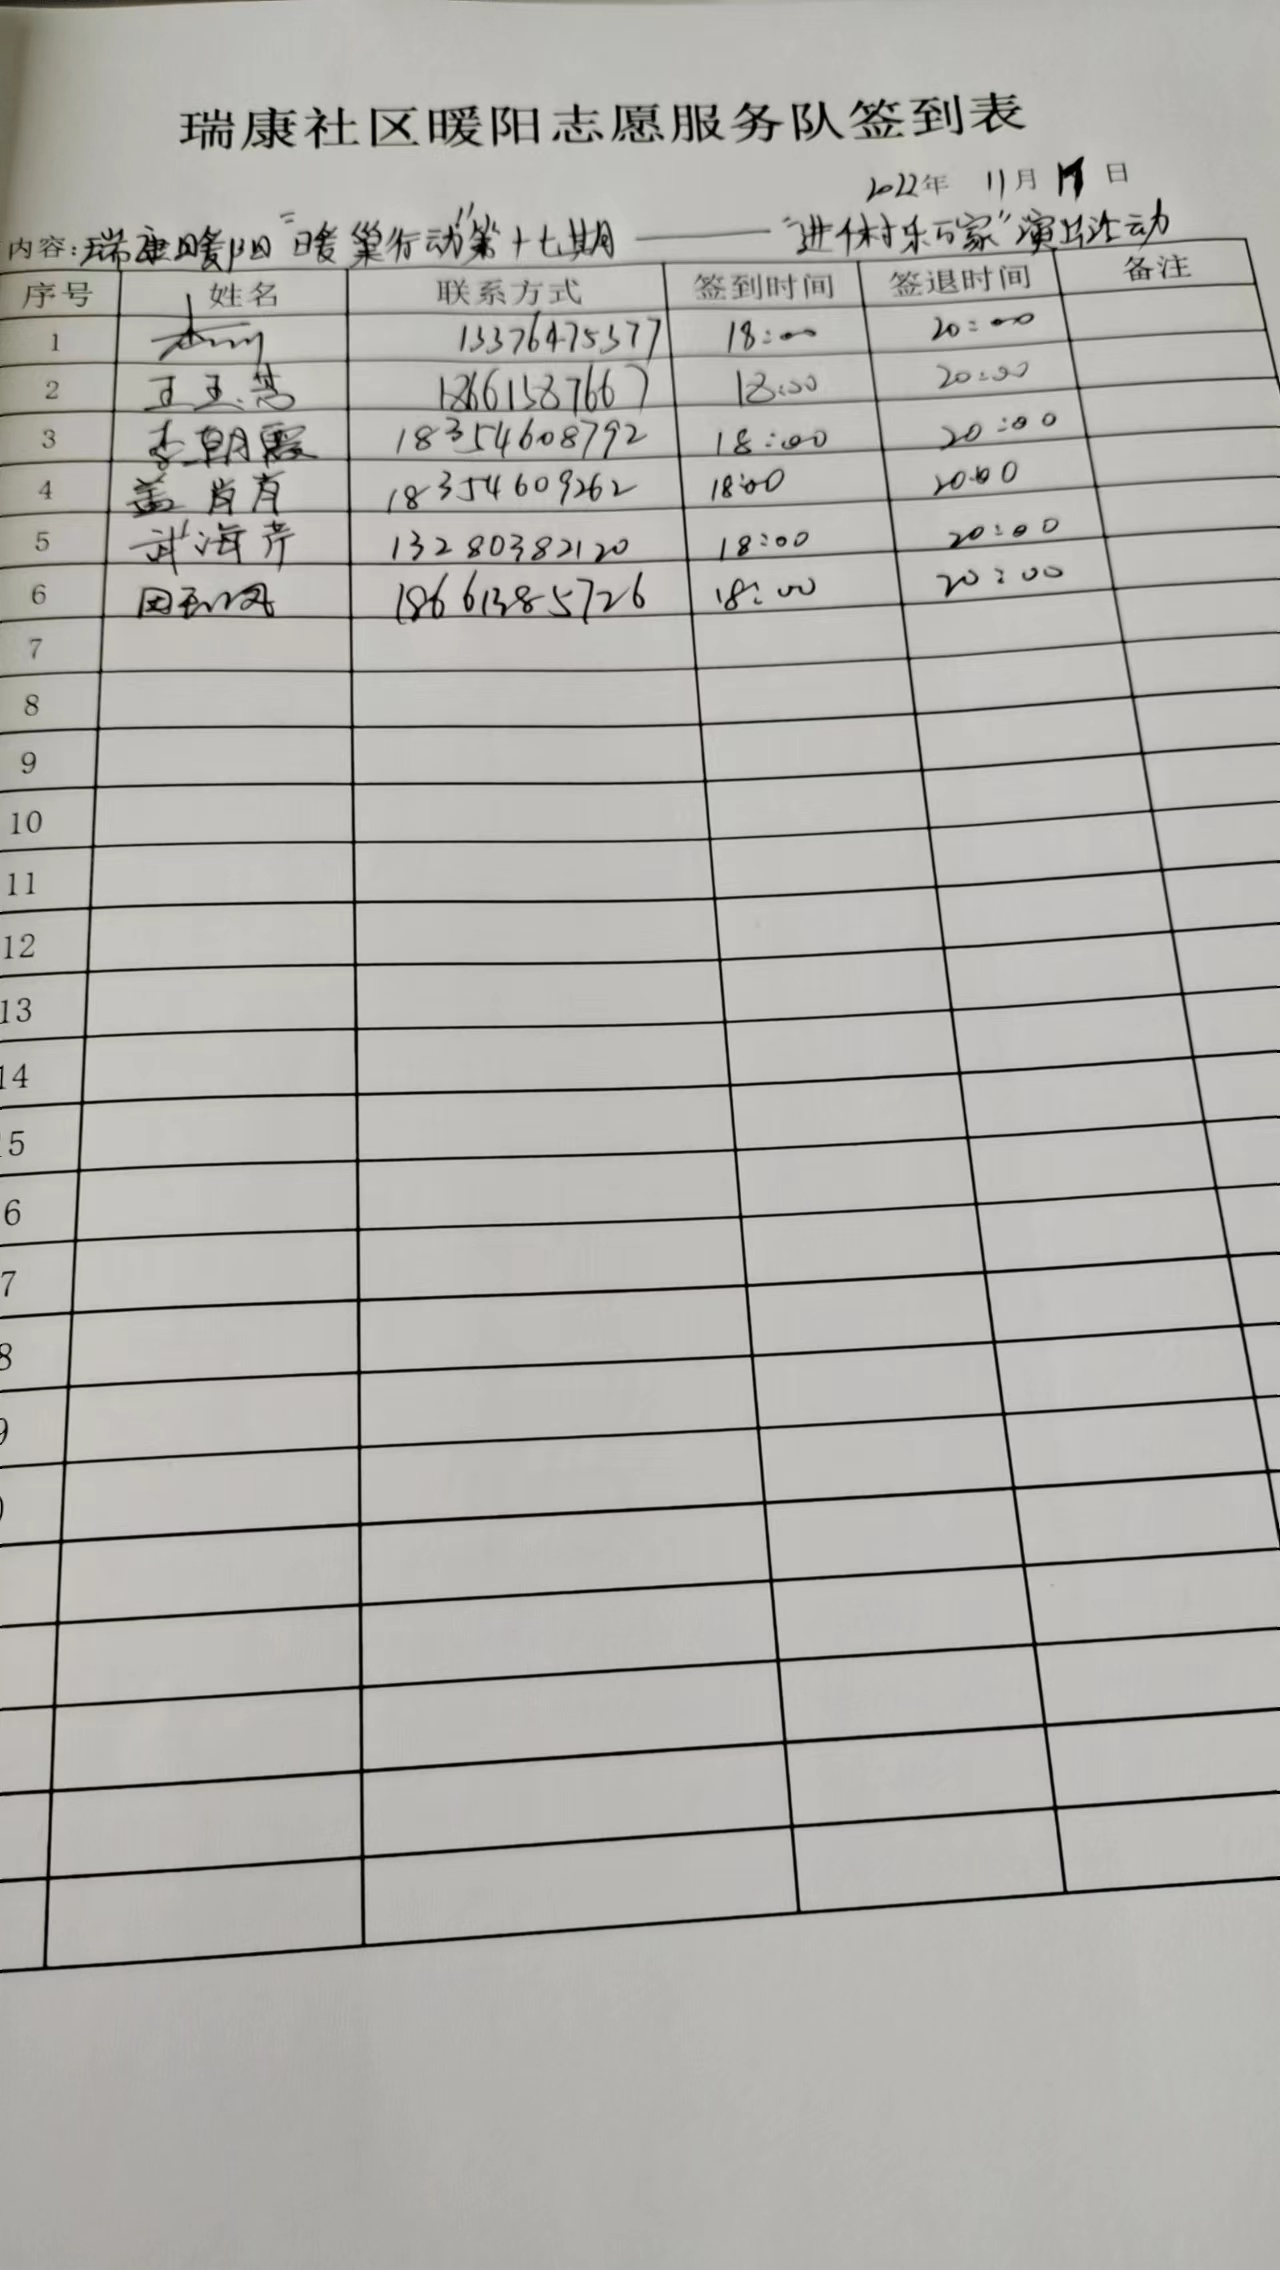 瑞康社区暖阳志愿服务队签到表
2022年 11月 日
内容:瑞康暖阳"暖巢行动"第十七期——"进休村乐万家"演出活动
序号 姓名 联系方式 签到时间 签退时间 备注
1 13376475377 18:00 20:00
2 王玉 18661587667 18:00 20:00
3 李朝霞 18354608792 18:00 20:00
4 盖肖肖 18354609262 18:00 20:00
5 武海芹 13280382120 18:00 20:00
6 田 凤 18661385726 18:00 20:00
7
8
9
10
11
12
13
14
15
6
7
8
9